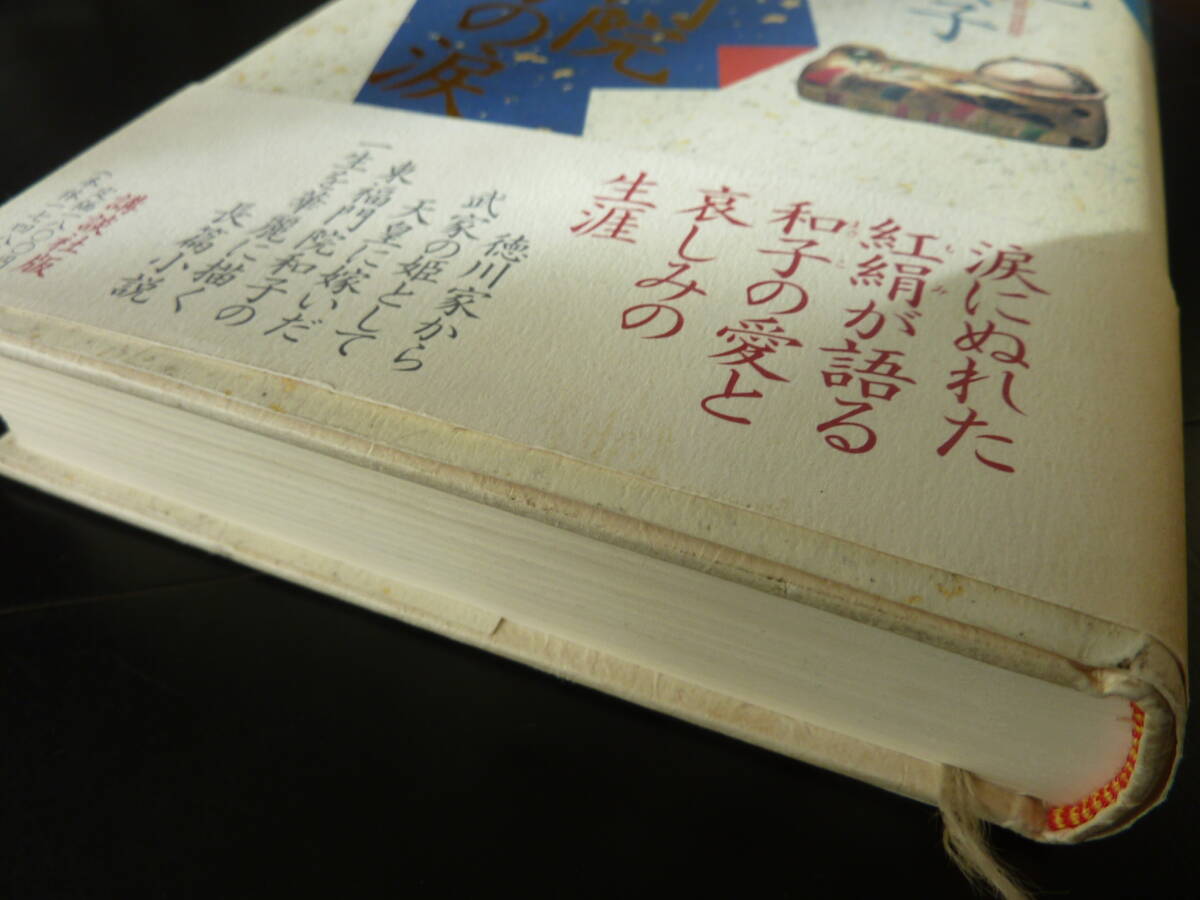 子
院
の涙
涙にぬれた
紅絹が語る
もみ
和子の愛と
まさこ
哀しみの
生涯
徳川家から
武家の姫として
天皇に嫁いだ
東福門院和子の
一生を華麗に描く
長篇小説
講談社版